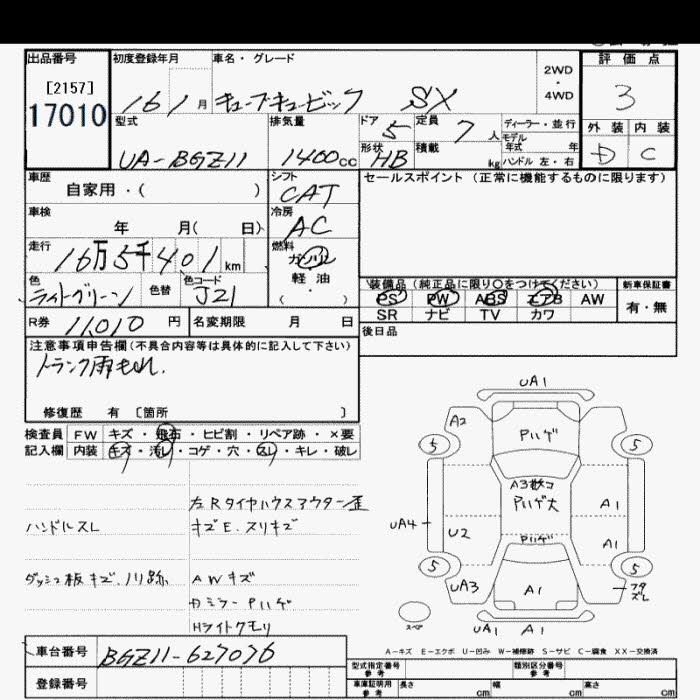 出品番号 初度登録年月 車名・グレード 評価点
[2157]
17010
16 1月 キューブキュービック SX
2WD・4WD
3
外装 内装
D C
型式 排気量 ドア 定員 ディーラー・並行
UA-BGZ11 1400cc 5 7人
モデル年式 年
形状 積載 kg ハンドル 左・右
HB
車歴 シフト セールスポイント (正常に機能するものに限ります)
自家用・( ) CAT
車検 冷房
年 月( 日) AC
走行 燃料
16万5千401km ガソリン
軽・油
( )
色 色替 色コード
ライトグリーン J21
装備品(純正品に限り○をつけてください) 新車保証書
PS PW ABS エアB AW 有・無
SR ナビ TV カワ
R券 11,010円 名変期限 月 日
後日品
注意事項申告欄(不具合内容等は具体的に記入して下さい)
トランク雨もれ.
修復歴 有 [箇所 ]
検査員 FW キズ・飛石・ヒビ割・リペア跡・×要
記入欄 内装 キズ・汚レ・コゲ・穴・スレ・キレ・破レ
左Rタイヤハウスアウター歪
ハンドルスレ キズE.スリキズ
ダッシュ板キズ.ノリ跡 AWキズ
カミラーPハゲ
Hライトクモリ
UA1
A2 Pハゲ
5 5
A3 Pハゲ大 A1
UA4 U2 Pハゲ A1
5 5
UA3 A1
スペア UA1 A1
A-キズ E-エクボ U-凹み W-補修跡 S-サビ C-腐食 XX-交換済
車台番号 BGZ11-627076
登録番号
型式指定番号 参考 類別区分番号 参考
車庫証明用 参考 長さ cm 幅 cm 高さ cm